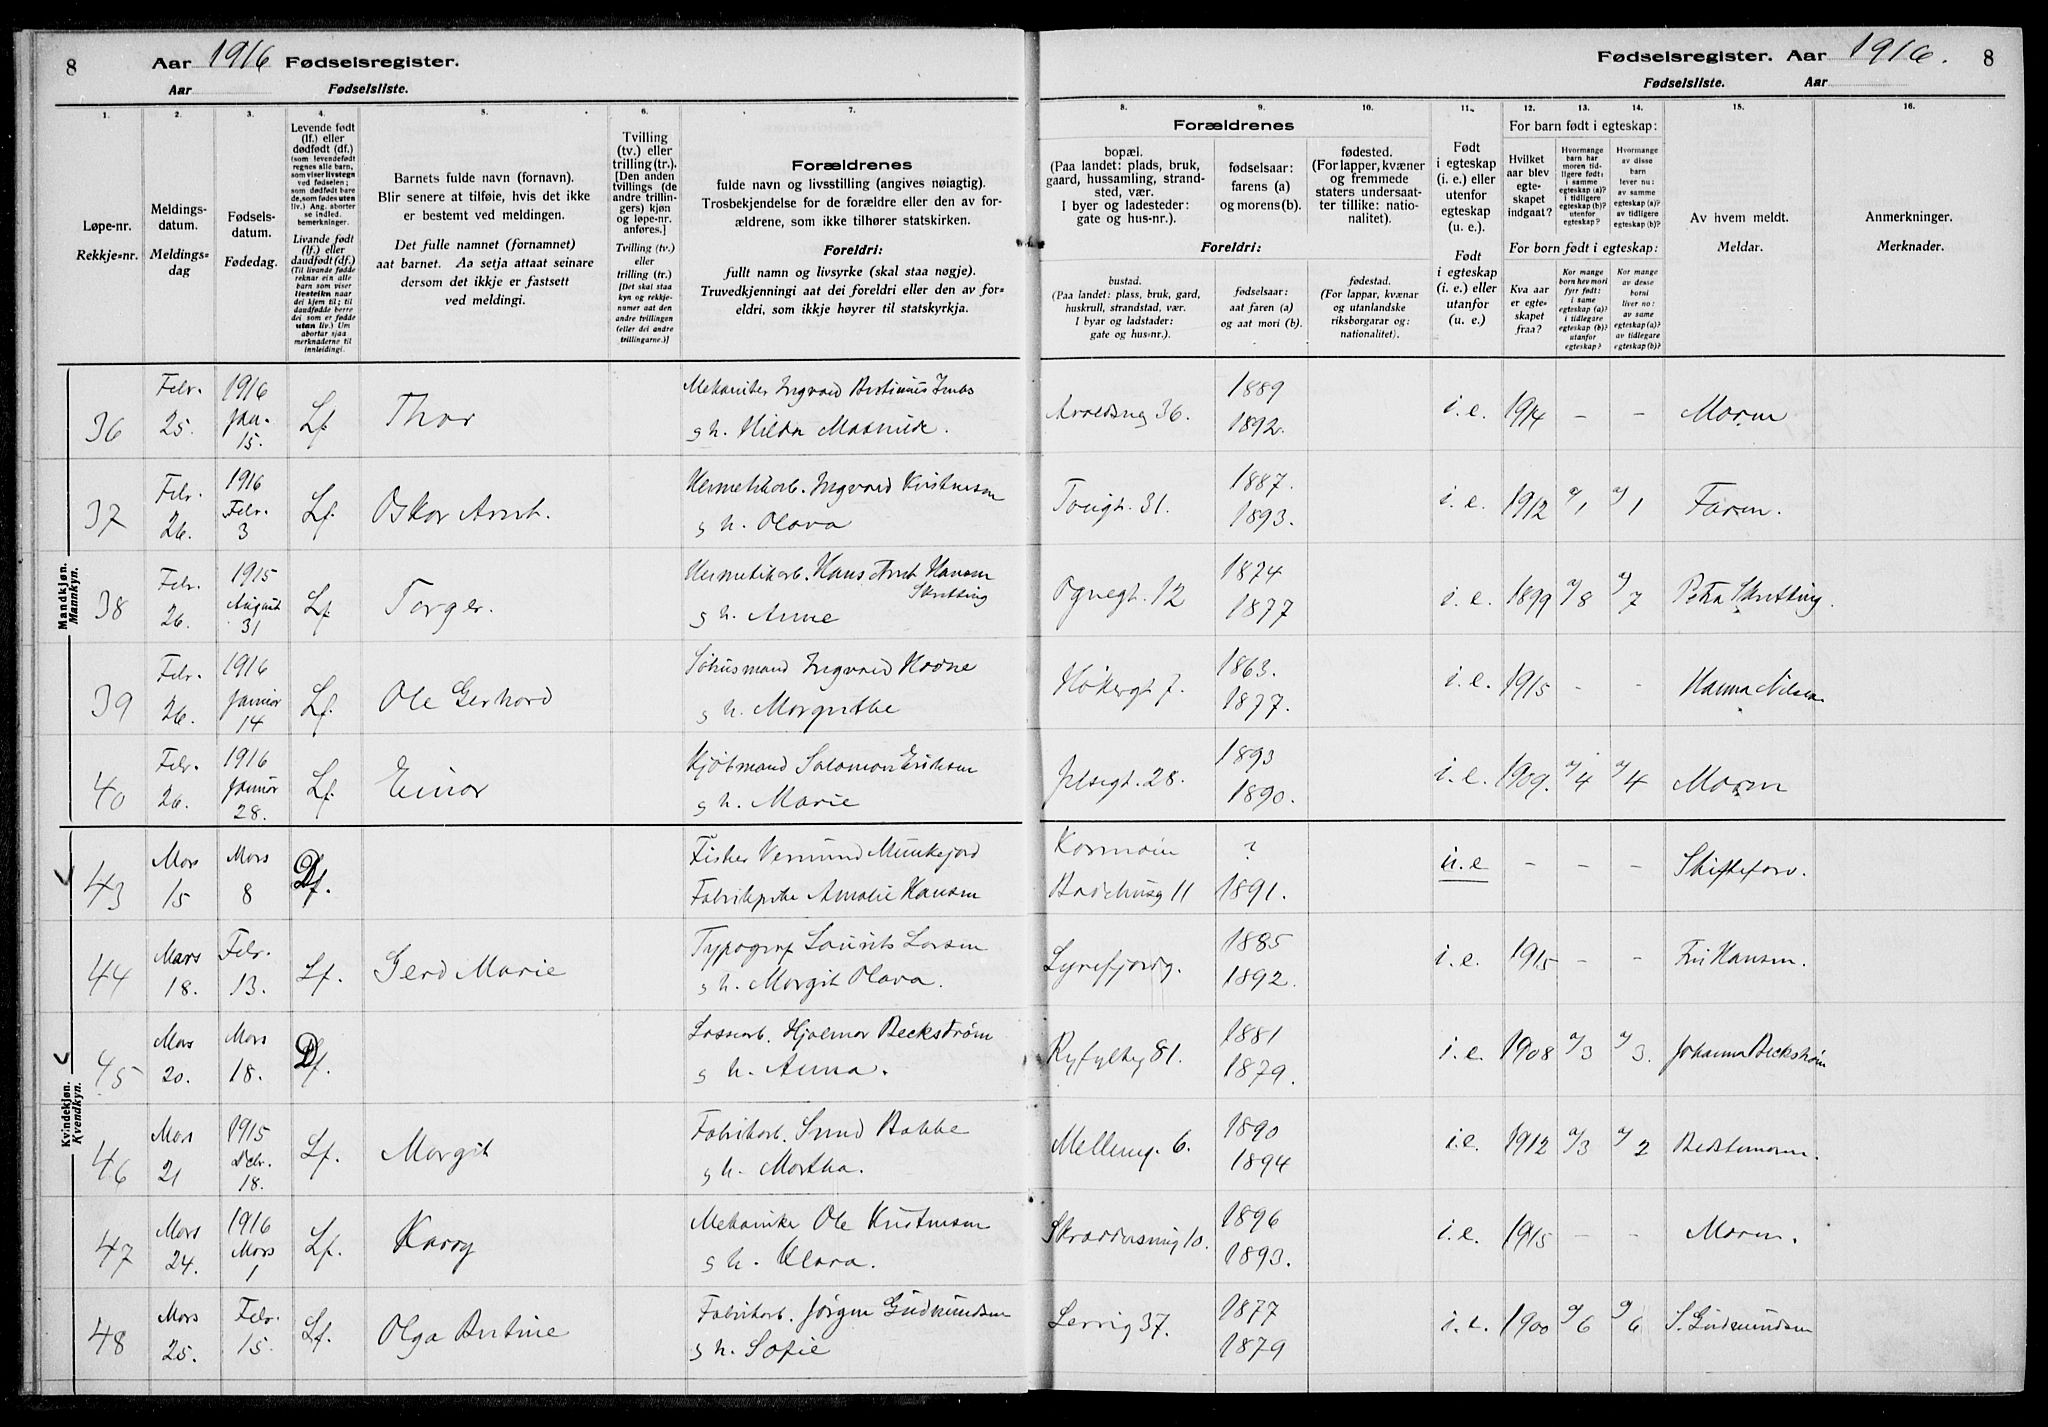 8 Aar 1916 Fødselsregister.
Aar Fødselsliste.
Fødselsregister. Aar 1916. 8
Fødselsliste. Aar
1. 2. 3. 4. 5. 6. 7. 8. 9. 10. 11. 12. 13. 14. 15. 16.
Løpe-nr.
Rekkje-nr.
Meldings-
datum.
Meldings-
dag
Fødsels-
datum.
Fødedag.
Levende født
(lf.) eller
dødfødt (df.)
(som levendefødt
regnes alle barn,
som viser livstegn
ved fødselen;
som dødfødt bare
de, som fødes uten
liv.) Ang. aborter
se indled.
bemerkninger.
Livande født
(lf.) eller
daudfødt (df.)
(Til livande fødde
reknar ein alle
barn som viser
livsteikn naar
dei kjem til; til
daudfødde berre
dei som er fødde
utan liv.) Um
abortar sjaa
merknaderne til
innleidingi.
Barnets fulde navn (fornavn).
Blir senere at tilføie, hvis det ikke
er bestemt ved meldingen.
Det fulle namnet (fornamnet)
aat barnet. Aa setja attaat seinare
dersom det ikkje er fastsett
ved meldingi.
Tvilling
(tv.) eller
trilling (tr.).
[Den anden
tvillings (de
andre trillin-
gers) kjøn
og løpe-nr.
anføres.]
Tvilling (tv.)
eller
trilling (tr.)
[Det skal staa
kyn og rekkje-
numer aat den
andre tvillingen
(eller dei andre
trillingarne.)]
Forældrenes
fulde navn og livsstilling (angives nøiagtig).
Trosbekjendelse for de forældre eller den av for-
ældrene, som ikke tilhører statskirken.
Foreldri:
fullt namn og livsyrke (skal staa nøgje).
Truvedkjenningi aat dei foreldri eller den av for-
eldri, som ikkje høyrer til statskyrkja.
Forældrenes
bopæl.
(Paa landet: plads, bruk,
gaard, hussamling, strand-
sted, vær.
I byer og ladesteder:
gate og hus-nr.).
fødselsaar:
farens (a)
og morens (b).
fødested.
(For lapper, kvæner
og fremmede
staters undersaat-
ter tillike: natio-
nalitet).
Foreldri:
bustad.
(Paa landet: plass, bruk, gard,
huskrull, strandstad, vær.
I byar og ladstader:
gate og hus-nr.).
fødselsaar:
aat faren (a)
og aat mori (b).
fødestad.
(For lappar, kvænar
og utanlandske
riksborgarar og:
nationalitet).
Født
i egteskap
(i. e.) eller
utenfor
egteskap
(u. e.).
Født
i egteskap
(i. e.) eller
utanfor
(u. e.)
For barn født i egteskap:
Hvilket
aar blev
egte-
skapet
indgaat?
Hvormange
barn har
moren tid-
ligere født:
i samme
egteskap (a)?
i tidligere
egteskap (b)?
utenfor
egteskap?
Hvormange
av disse
barn
lever nu:
av samme
egteskap (a)?
av tidligere
egteskap (b)?
For born født i egteskap:
Kva aar
er egte-
skapet
fraa?
Kor mange
born hev mori
fyrr født:
i same
egteskap (a)?
i tidlegare
egteskap (b)?
utanfor
egteskap?
Kor mange
av desse
borni
liver no:
av same
egteskap (a)?
av tidlegare
egteskap (b)?
Av hvem meldt.
Meldar.
Anmerkninger.
Merknader.
Mandkjøn.
Mannkyn.
36 Febr. 25. 1916 Jan. 15. Lf. Thor
Mekaniker Ingvald Bertinius
g h. Hilda Mathilde.
Avaldsneg 36. 1889 1892. i.e. 1914 - - Moren
37 Febr. 26. 1916 Febr. 3 Lf. Oskar Arnt.
Hermetikarb. Ingvald Kristensen
g h. Olava
31. 1887. 1893. i.e. 1912 a/1 a/1 Faren.
38 Febr. 26. 1915 August 31 Lf. Torger.
Hermetikarb. Hans Arnt Hansen
Skretting
g h. Anne
Ognegt. 12 1874 1877 i.e. 1899 a/8 a/7 Petra Skretting.
39 Febr. 26. 1916 Januar 14 Lf. Ole Gerhard
Sjøhusmand Ingvald
g h. Margrethe
Høkergt 7. 1863. 1877. i.e. 1915 - - Hanna Nilsen
40 Febr. 26. 1916 Januar 28. Lf. Einar
Kjøbmand Salomon Eriksen
g h. Marie
Jelsegt. 28. 1893 1890. i.e. 1909. a/4 a/4 Moren
Kvindekjøn.
Kvendkyn.
43 Mars 15 Mars 8 Df.
Fisker Vermund Munkejord
Fabrikpike Amalie Hansen
Karmøen
Badehusg 11 ? 1891. u.e - - - Skifteforv.
44 Mars 18. Febr. 13. Lf. Gerd Marie
Typograf Laurits Larsen
g h. Margit Olava.
Lysefjordg. 1885 1892. i.e. 1915 - - Fru Hansen.
45 Mars 20. Mars 18. Df.
Lossearb. Hjalmar Beckstrøm
g h. Anna.
Ryfylkeg 81. 1881 1879. i.e. 1908 a/3 a/3. Johanna Beckstrøm
46 Mars 21 1915 Debr. 18. Lf. Margit
Fabrikarb. Svend Bakke
g h. Martha.
Mellemg. 6. 1890 1894 i.e. 1912 a/3 a/2 Bedstemoren.
47 Mars 24. 1916 Mars 1 Lf. Karry
Mekaniker Ole Kristensen
g h. Klara.
10. 1896 1893. i.e. 1915 - - Moren.
48 Mars 25. Febr. 15. Lf. Olga Bertine
Fabrikarb. Jørgen Gudmundsen
g h. Sofie
Lervig 37. 1877 1879 i.e. 1900 a/6 a/6 S. Gudmundsen